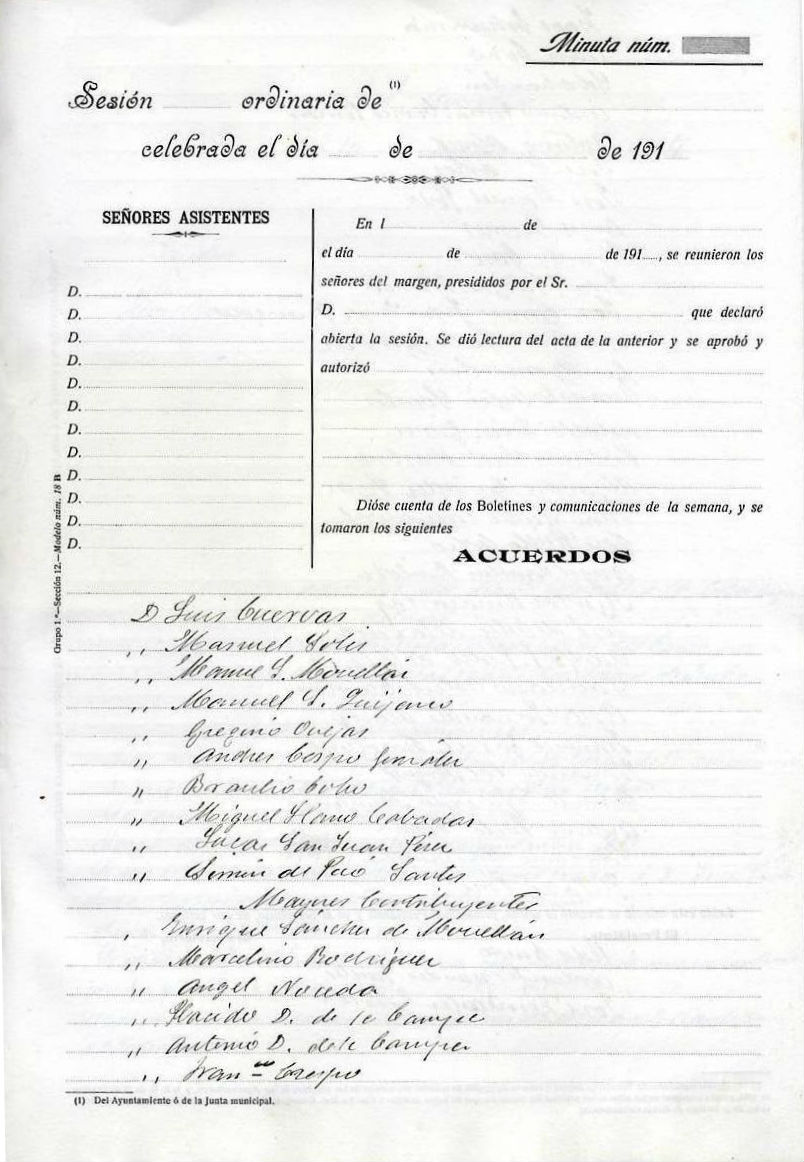 Minuta núm.
Sesión ordinaria de (1)
celebrada el día de de 191
SEÑORES ASISTENTES
D.
D.
D.
D.
D.
D.
D.
D.
D.
D.
D.
D.
En l de
el día de de 191......, se reunieron los
señores del margen, presididos por el Sr.
D. que declaró
abierta la sesión. Se dió lectura del acta de la anterior y se aprobó y
autorizó
Dióse cuenta de los Boletines y comunicaciones de la semana, y se
tomaron los siguientes
ACUERDOS
Grupo 1.º—Sección 12.—Modelo núm. 18 B
D Luis Cuervas
,, Manuel Solis
,, Manuel S. Movellán
,, Manuel S. Quijano
,, Gregorio Ovejas
,, Andres Crespo González
,, Braulio Cobo
,, Miguel Llano Cobadas
,, Lucas San Juan Pérez
,, Simón de Santos
Mayores Contribuyentes
, Enrique Sánchez de Movellán
,, Marcelino Rodríguez
,, Angel Noceda
,, Placido D. de la Campa
,, Antonio D. de la Campa
,, Franco Crespo
(1) Del Ayuntamiento ó de la Junta municipal.